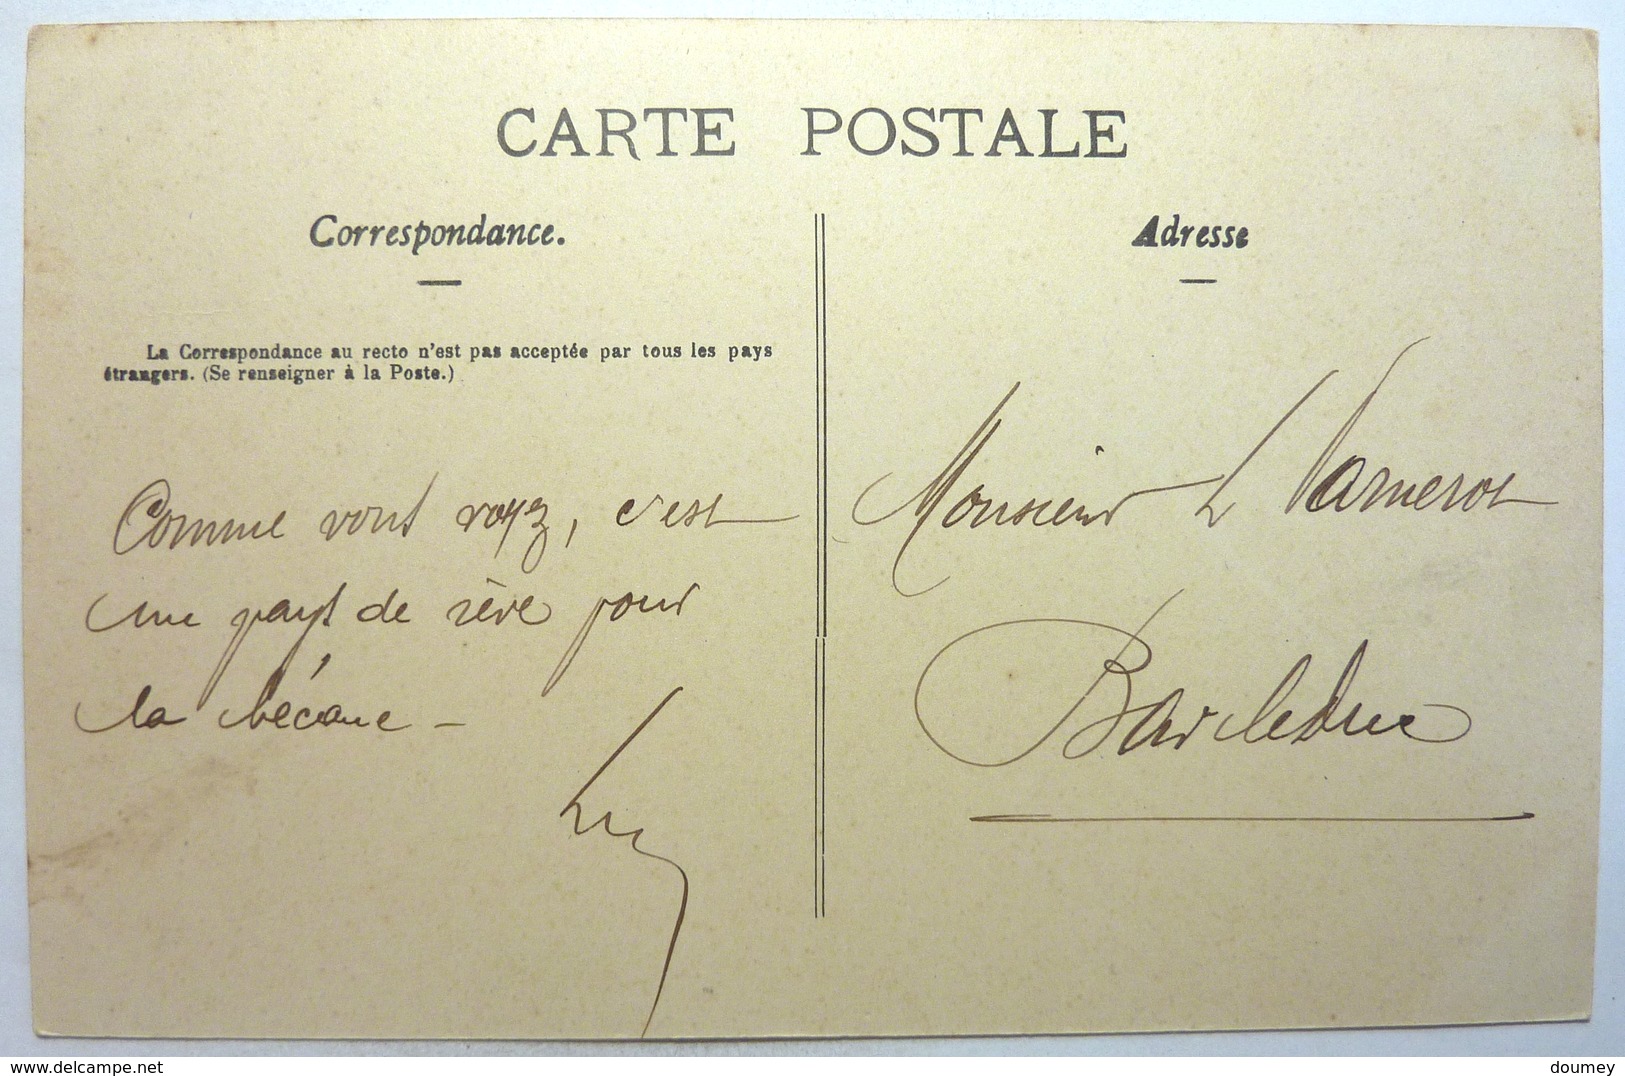 CARTE POSTALE
Correspondance.
La Correspondance au recto n'est pas acceptée par tous les pays
étrangers. (Se renseigner à la Poste.)
Comme vous voyez, c'est
un pays de rêve pour
la bécane –
Adresse
Monsieur L Varnerot
Bar le Duc
delcampe.net
doumey